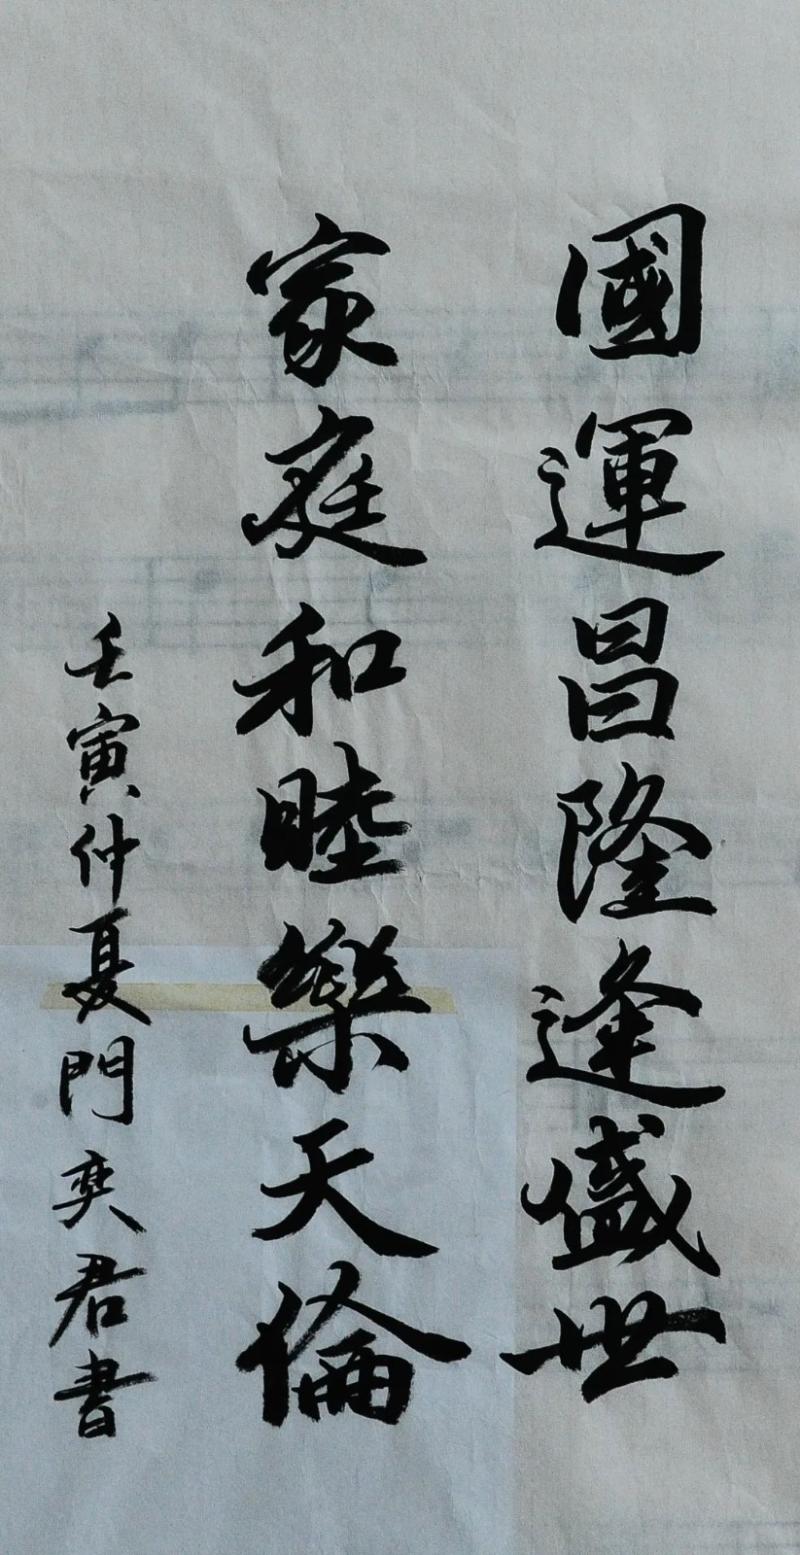 國運昌隆逢盛世
家庭和睦樂天倫
壬寅仲夏門奕君書